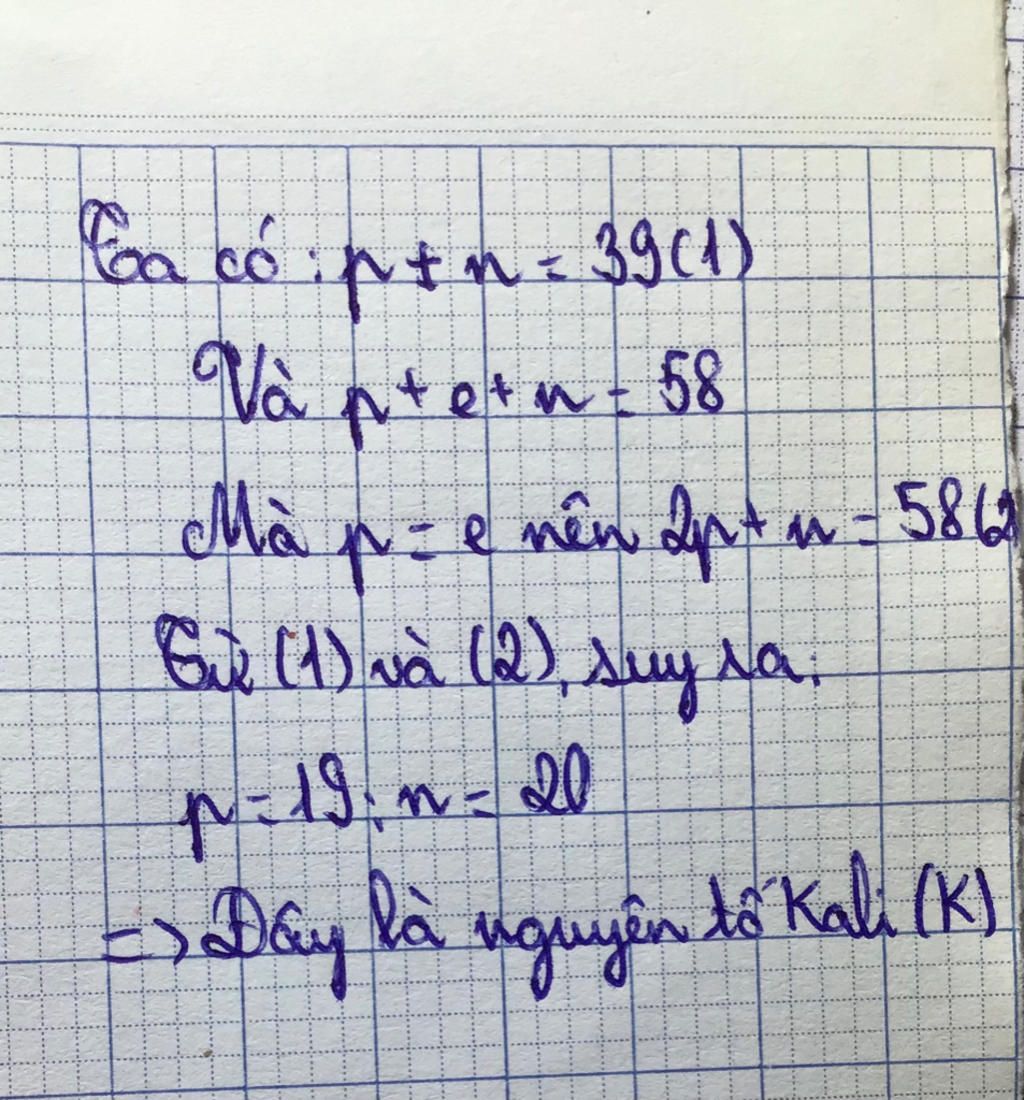 Ta có : p + n = 39 (1)
Và p + e + n = 58
Mà p = e nên 2p + n = 58 (2
Từ (1) và (2), suy ra:
p = 19 ; n = 20
=> Đây là nguyên tố Kali (K)